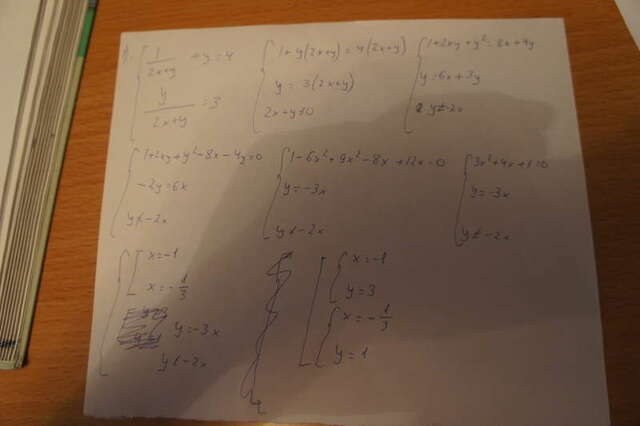 1). { 1/(2x+y) + y = 4
y/(2x+y) = 3
{ 1 + y(2x+y) = 4(2x+y)
y = 3(2x+y)
2x+y≠0
{ 1+2xy+y² = 8x+4y
y = 6x+3y
y≠-2x
{ 1+2xy+y²-8x-4y=0
-2y=6x
y≠-2x
{ 1-6x²+9x²-8x+12x=0
y=-3x
y≠-2x
{ 3x²+4x+1=0
y=-3x
y≠-2x
{ [ x=-1
x=-1/3
y=-3x
y≠-2x
[ { x=-1
y=3
{ x=-1/3
y=1